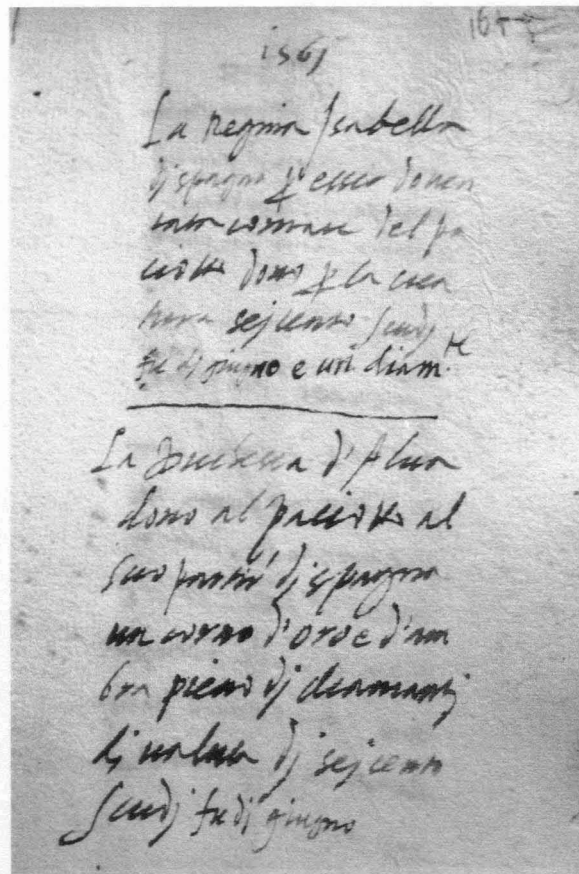 1561
La Regina Isabella
dj spagna p esser douen
tata comare del pa
ciotto dono p la crea
tura sejcento scudj
fu dj giugno e un diam.te
La Duchessa d'Alua
dono al paciotto al
suo partir dj spagna
un corno d'oro e d'am
bra pieno dj diamantj
dj ualuta dj sejcento
scudj fu dj giugno